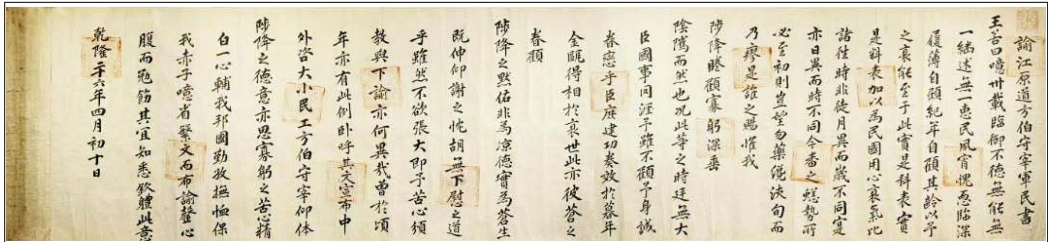 諭江原道方伯守宰軍民書
王若曰噫卅載臨御不德無能無
一繼述無一惠民夙宵愧恧臨深
履薄自顧紀年自顧其齡以予
之衰能至于此實是料表實
是料表加以爲民國用心衰氣比
諸往時非徒月異而歲不同寔
亦日異而時不同今番之愆勢所
必至初則豈望勿藥纔浹旬而
乃瘳是誰之賜惟我
陟降睠顧寡躬深垂
陰隲而然也況此等之時廷無大
臣國事罔涯予雖不顧予身誠
眷戀乎臣庶建功奏效於暮年
金甌得相於衰世此亦彼蒼之
眷顧
陟降之默佑非爲凉德實爲蒼生
旣伸仰謝之忱胡無下慰之道
乎雖然不欲張大卽予苦心須
敎與下諭亦何異哉曾於頃
年亦有此例卧呼其文宣布中
外咨大小民工方伯守宰仰體
陟降之德意亦思寡躬之苦心精
白一心輔我邦國勤牧撫恤保
我赤子噫省繁文而布諭罄心
腹而勉飭其宜知悉欽體此意
乾隆二十六年四月初十日